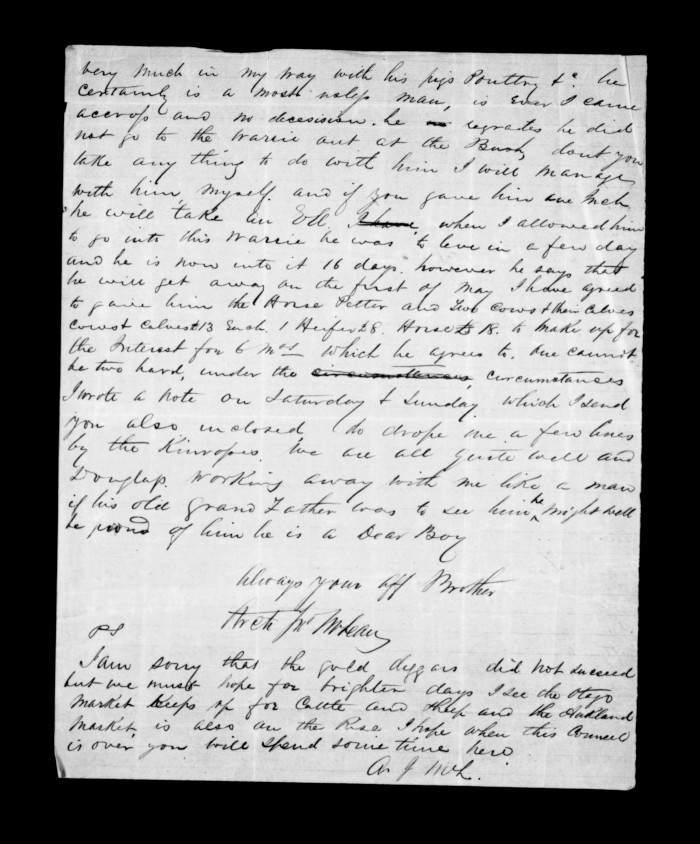 very much in my way with his pigs Poultry &c. he
certainly is a most useless man, is Ever I came
accross and no decesision. he regrates he did
not go to the warrie out at the Bush, dont you
take any thing to do with him I will manage
with him myself. and if you gave him one Inch
he will take an Ell when I allowed him
to go into this warrie he was to leve in a few day
and he is now into it 16 days. however he says that
he will get away on the first of May I have agreed
to gave him the Horse Petter and Two Cows & their Calves
cows & calves £13 Each. 1 Heifer £8. Horse £18. to make up for
the Interest for 6 mos which he agrees to. One cannot
be two hard, under the circumstances circumstances
I wrote a note on Saturday & Sunday which I send
you also inclosed, do drope me a few lines
by the Kinropes. We are all quite well and
Douglas. Working away with me like a man
if his old Grand Father was to see him, he might well
be proud of him he is a Dear Boy
Always your aff Brother
Arch Jn McLean
PS
I am sorry that the gold diggars did not succeed
but we must hope for brighter days I see the Otago
Market Keeps up for Cattle and Sheep and the Aukland
Market, is also on the Rise. I hope when this Council
is over you will spend some time here
A. J McL.